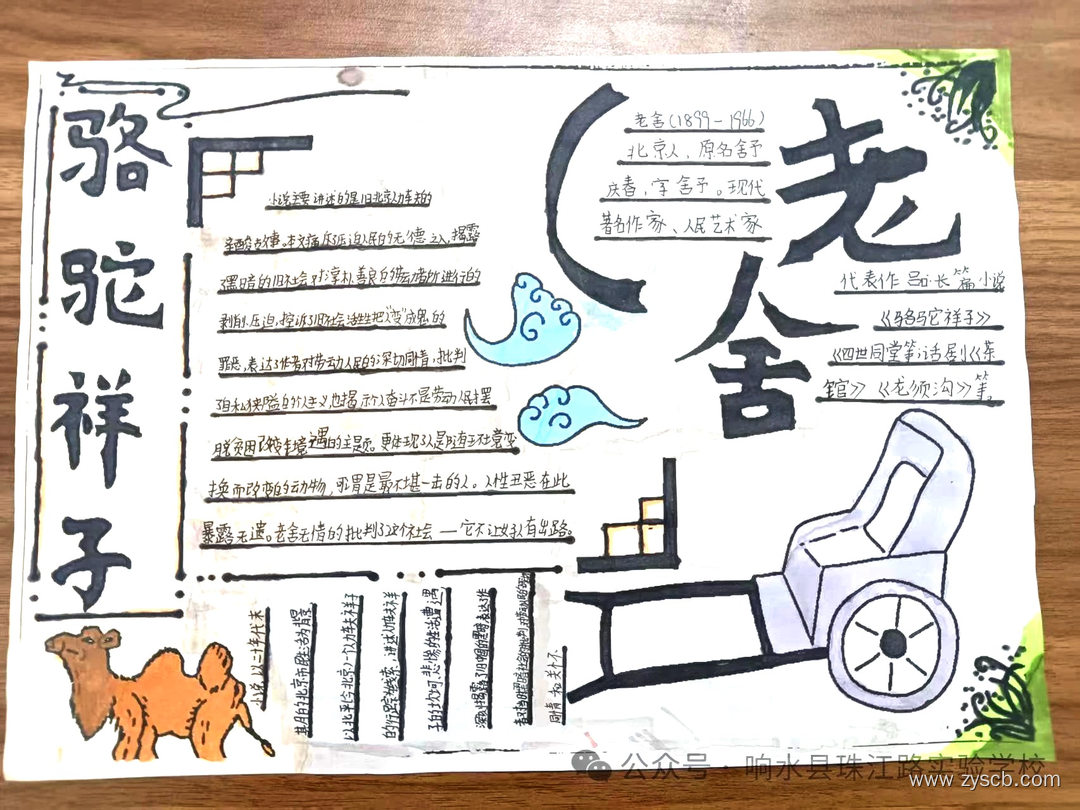 骆驼祥子
小说主要讲述的是旧北京人力车夫的
辛酸故事。本文痛斥压迫人民的无德之人,揭露
了黑暗的旧社会对淳朴善良的劳动者所进行的
剥削、压迫,控诉了旧社会活生生把人"变"成鬼的
罪恶,表达了作者对劳动人民的深切同情,批判
了自私狭隘的个人主义,也揭示个人奋斗不是劳动人民摆
脱贫困改变境遇的主题。更体现了人是随王不境变
换而改变的动物,可谓是最不堪一击的人。人性丑恶在此
暴露无遗。老舍无情的批判了这个社会——它不让好人有出路。
老舍(1899-1966)
北京人,原名舒
庆春,字舍予。现代
著名作家、人民艺术家
老舍
代表作 长篇小说
《骆驼祥子》
《四世同堂》等话剧《茶
馆》《龙须沟》等。
小说以二十年代末
期的北京市民生活为背景
以北平(今北京)一个人力车夫祥子
的行踪为线索,讲述人力车夫祥
子的坎坷悲惨的生活遭遇
深刻揭露了旧中国的黑暗,表达了作
同情和关怀
公众号·响水县珠江路实验学校
www.zyscb.com